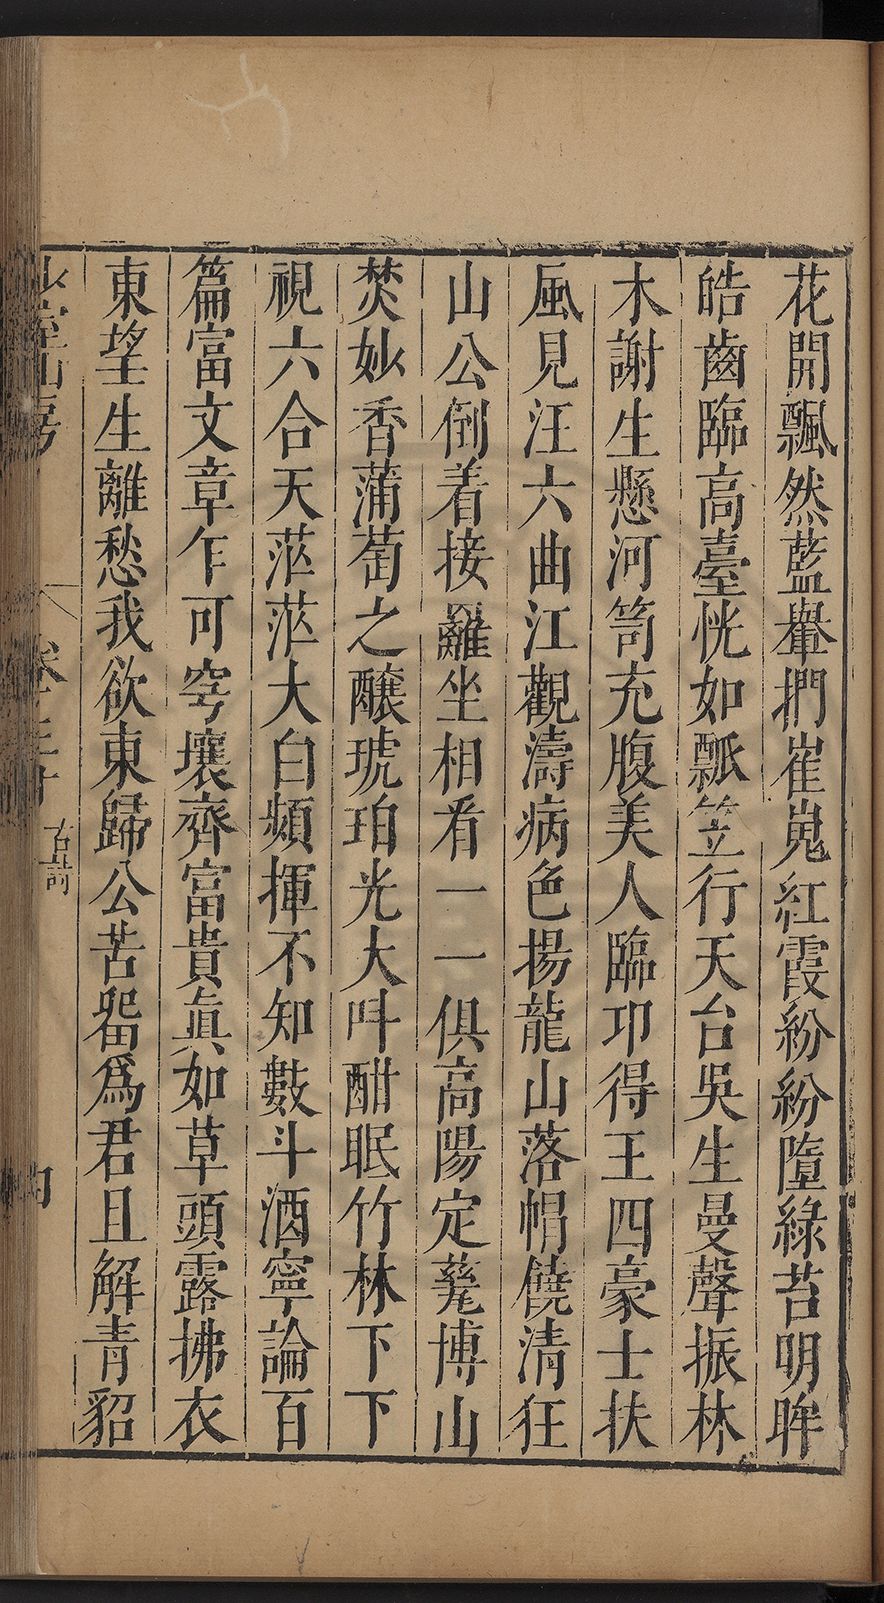 花開飄然藍轝捫崔嵬紅霞紛紛墮綠苔明眸
皓齒臨高臺恍如瓢笠行天台吳生曼聲振林
木謝生懸河笥充腹美人臨卭得王四豪士扶
風見汪六曲江觀濤病色揚龍山落帽饒清狂
山公倒着接䍦坐相看一一俱高陽定蕤博山
焚妙香蒲萄之釀琥珀光大呌酣眠竹林下下
視六合天茫茫大白頻揮不知數斗酒寧論百
篇富文章乍可穹壤齊富貴眞如草頭露拂衣
東望生離愁我欲東歸公苦畱爲君且解青貂
少室山房
卷二十
古詩
四